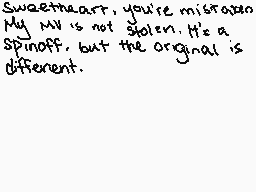 Sweetheart, you're mistaken
My MV is not stolen. It's a
spinoff, but the original is
different.